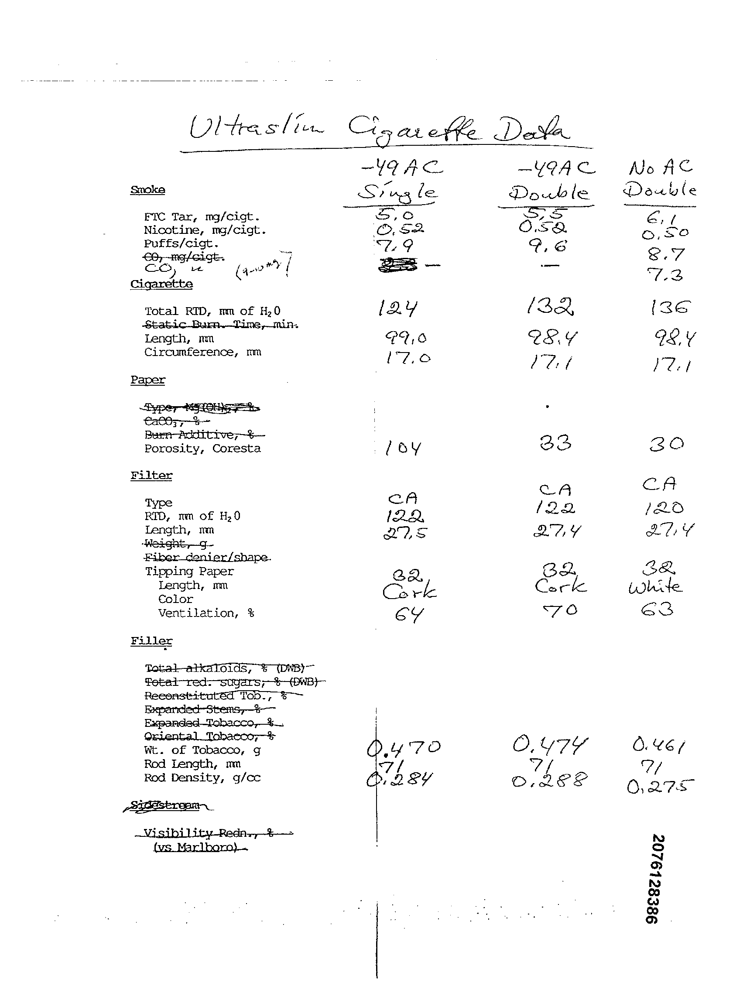 Ultraslim Cigarette Data
-49 AC -49 AC No AC
Smoke Single Double Double
FTC Tar, mg/cigt. 5.0 5.5 6.1
Nicotine, mg/cigt. 0.52 0.52 0.50
Puffs/cigt. 7.9 9.6 8.7
CO, mg/cigt.
CO, (9-10 mg) — — 7.3
Cigarette
Total RTD, mm of H2O 124 132 136
Static Burn. Time, min.
Length, mm 99.0 98.4 98.4
Circumference, mm 17.0 17.1 17.1
Paper
Type, Mg(OH)2, %
CaCO3, %
Burn Additive, %
Porosity, Coresta 104 33 30
Filter
Type CA CA CA
RTD, mm of H2O 122 122 120
Length, mm 27.5 27.4 27.4
Weight, g
Fiber denier/shape
Tipping Paper
Length, mm 32 32 32
Color Cork Cork White
Ventilation, % 64 70 63
Filler
Total alkaloids, % (DWB)
Total red. sugars, % (DWB)
Reconstituted Tob., %
Expanded Stems, %
Expanded Tobacco, %
Oriental Tobacco, %
Wt. of Tobacco, g 0.470 0.474 0.461
Rod Length, mm 71 71 71
Rod Density, g/cc 0.284 0.288 0.275
Sidestream
Visibility Redn., %
(vs Marlboro)
2076128386